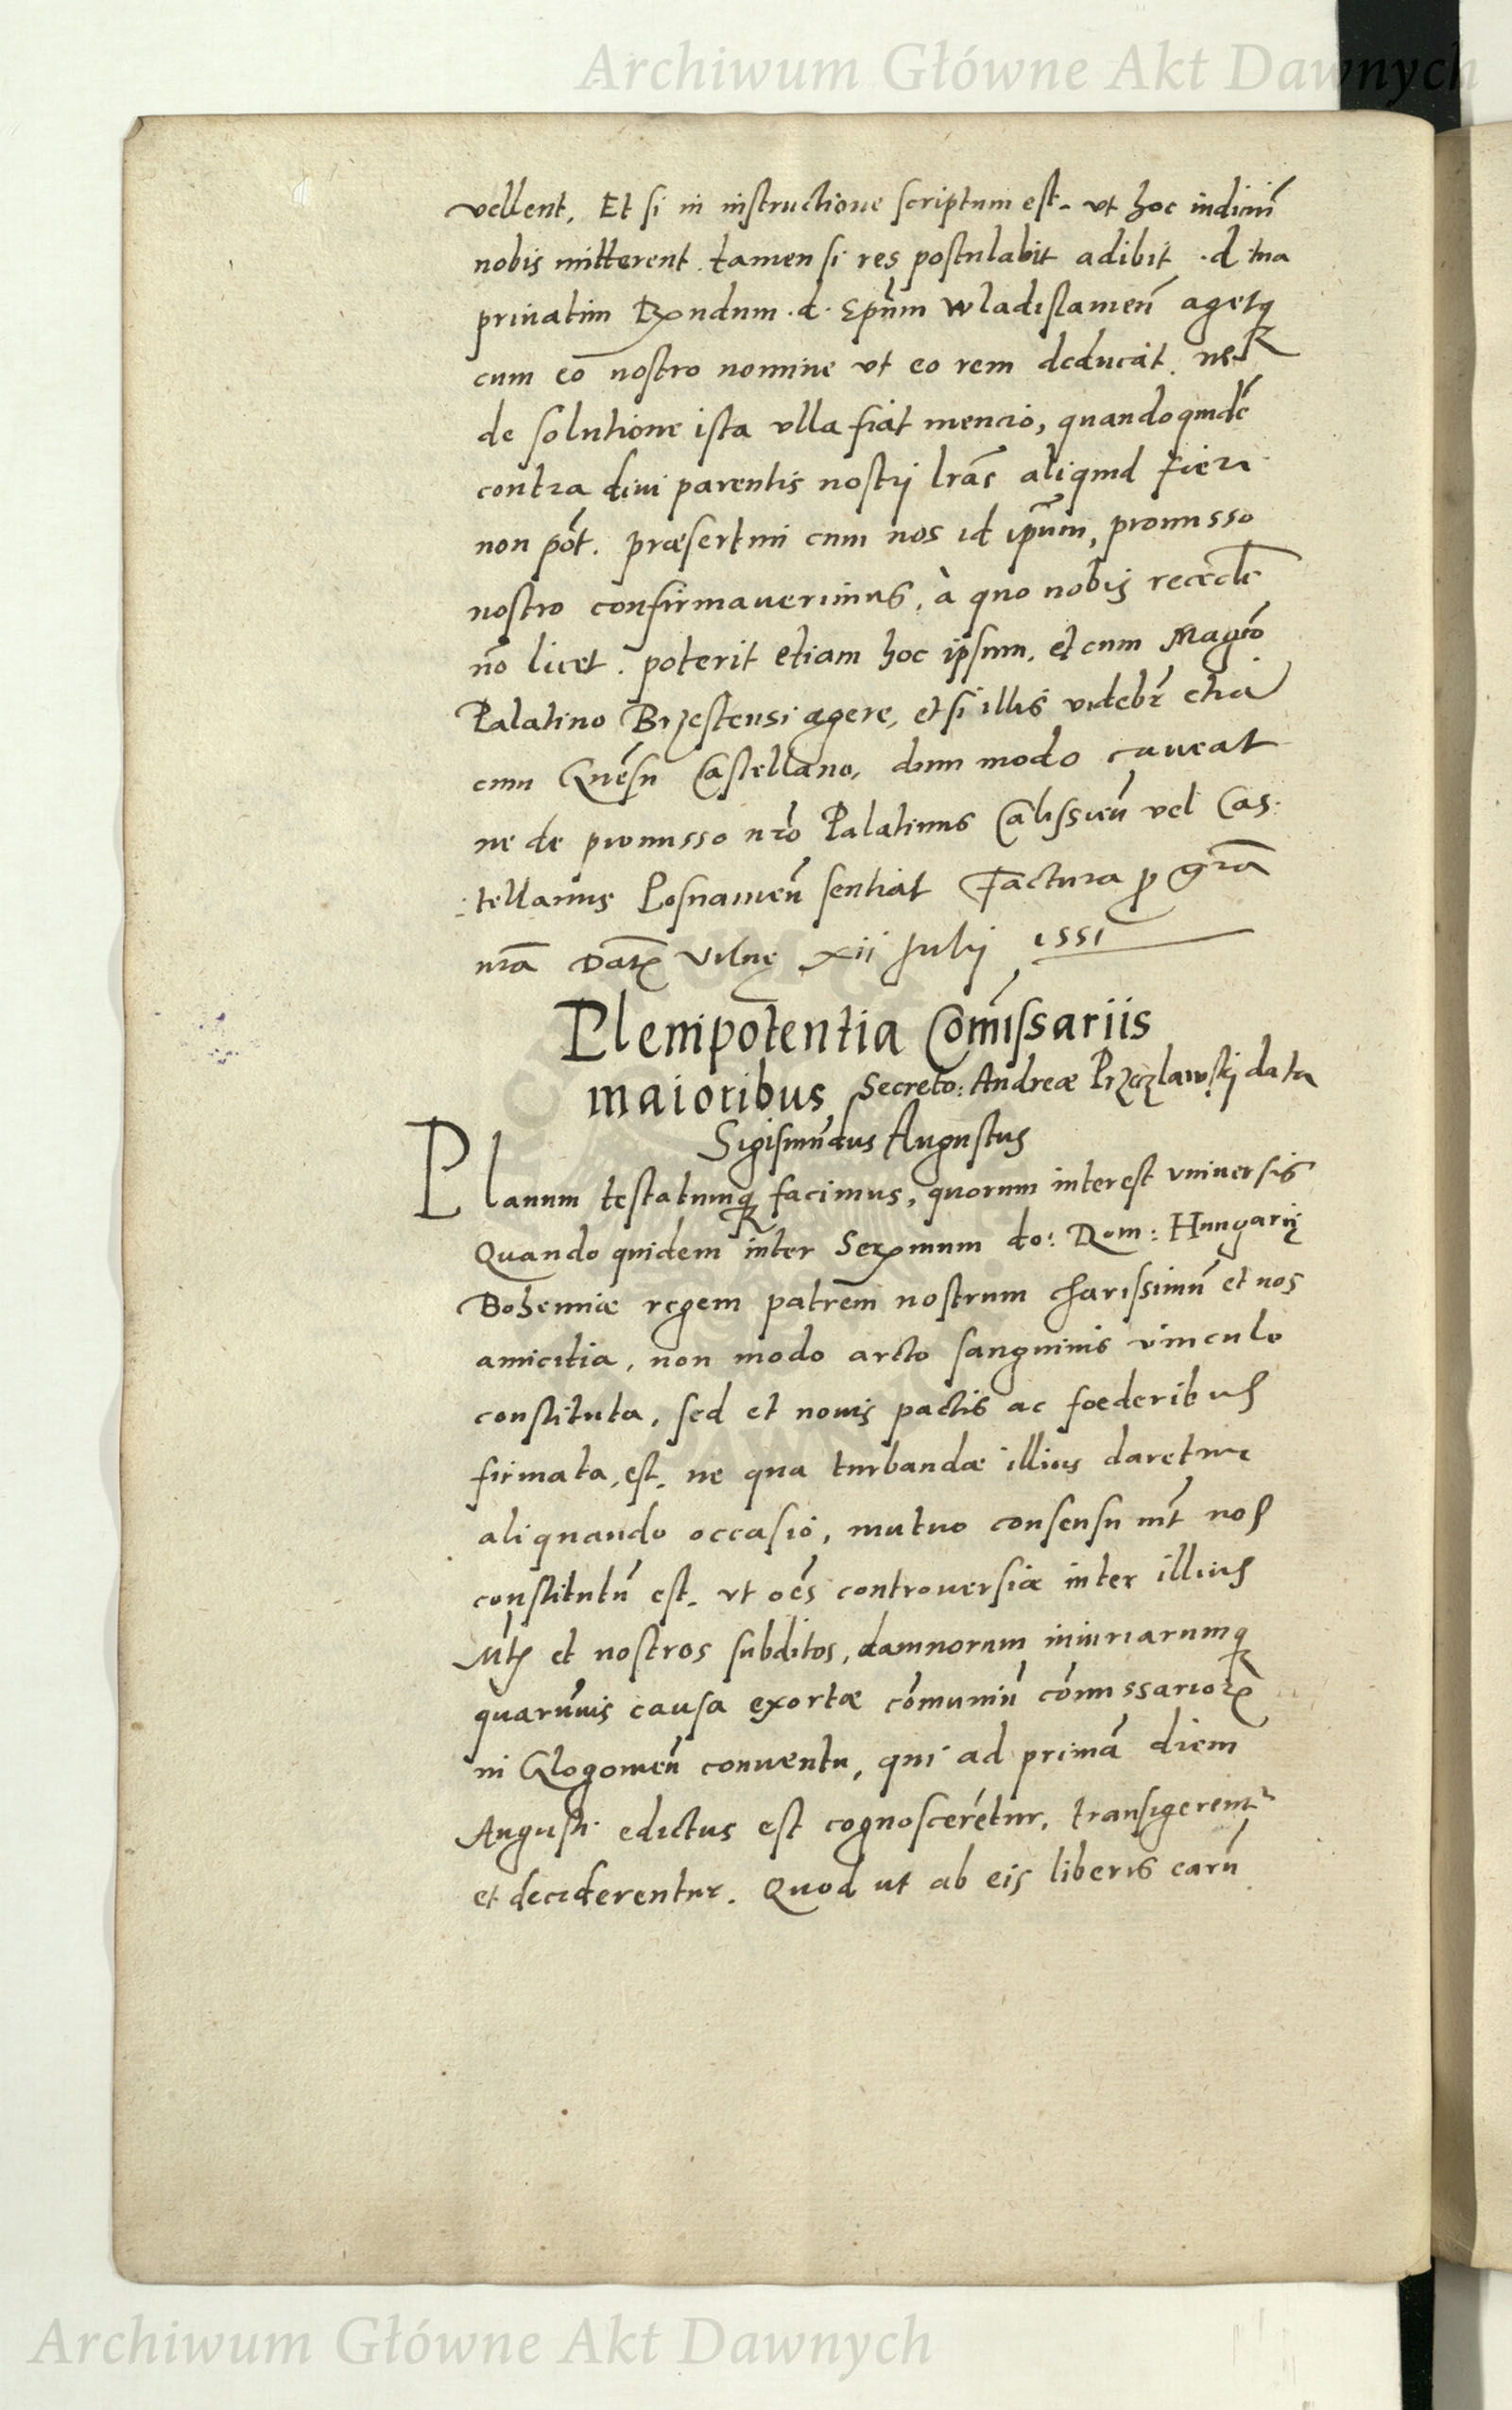 Archiwum Główne Akt Dawnych
vellent, Et si in instructione scriptum est. vt hoc indiciũ
nobis mitterent. tamen si res postulabit adibit .d. tua
priuatim Rxndum .d. Epũm Wladislauieñ agetq̃
cum eo nostro nomine vt eo rem deducat. ne
de solutione ista vlla fiat mencio, quandoquidẽ
contra diui parentis nostrj lrãs aliquid fieri
non põt. præsertim cum nos id ipsũm, promisso
nostro confirmauerimus, à quo nobis
nõ licet. poterit etiam hoc ipsum, et cum Magco
Palatino Brzestensi agere, et si illis videbr̃ etiã
cum Gnẽsñ Castellano, dum modo caueat
ne de promisso nr̃o Palatinus Calissieñ vel Cas:
:tellanus Posnanieñ sentiat Factura p grãa
nrãm Datę Vilnę xii Julij 1551
Plenipotentia Com̃issariis
maioribus Secreto: Andreæ Przeczlawskj data
Sigismũdus Augustus
Planum testatumq̃ facimus, quorum interest vniuersis
Quando quidem inter Serxmum do: Rom: Hungarię
Bohemiæ regem patrem nostrum charissimũ et nos
amicitia, non modo arcto sanguinis vinculo
constituta, sed et nouis pactis ac foederibus
firmata, est. ne qua turbandæ illius daretur
aliquando occasio, mutuo consensu int̃ nos
constitutũ est. vt oẽs controuersiæ inter illius
Mtis et nostros subditos, damnorum iniuriarumq̃
quarũuis causa exortæ cõmuniũ cõmissariorę
in Glogouieñ conuentu, qui ad primã diem
Augusti edictus est cognosceretur, transigerent̃
et deciderentur. Quod ut ab eis liberis earũ
Archiwum Główne Akt Dawnych